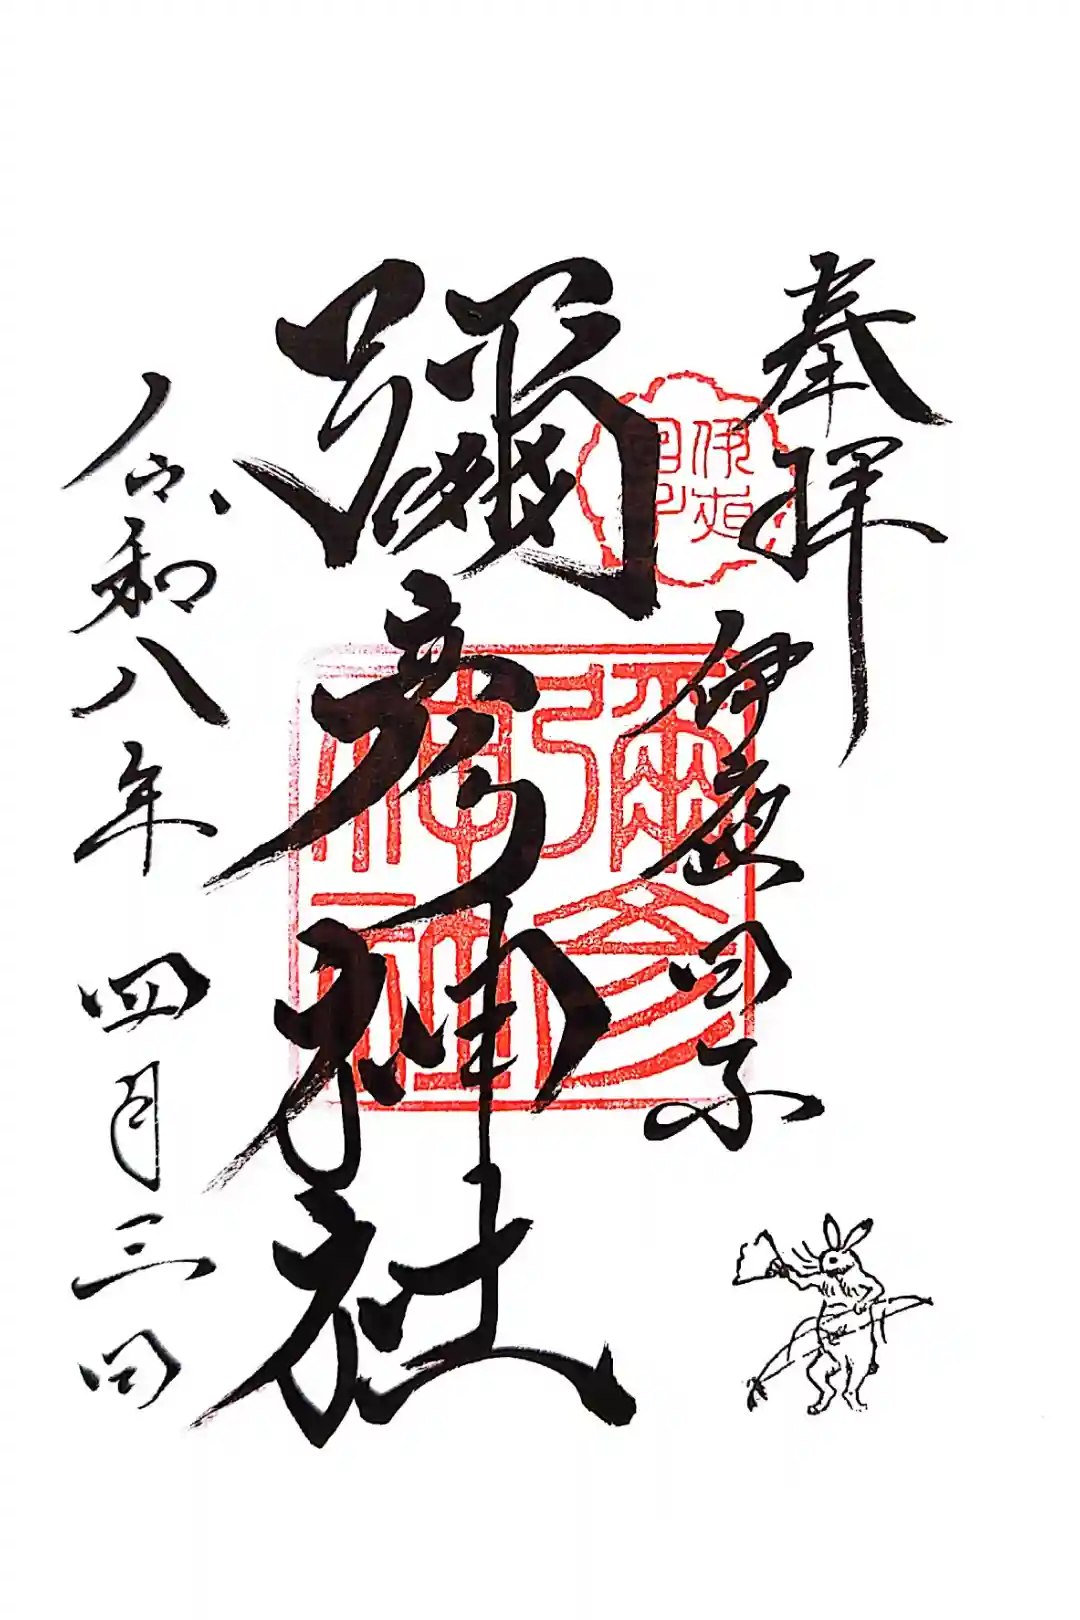 奉拝
伊夜日子
彌彦神社
彌彦神社
令和八年四月三日